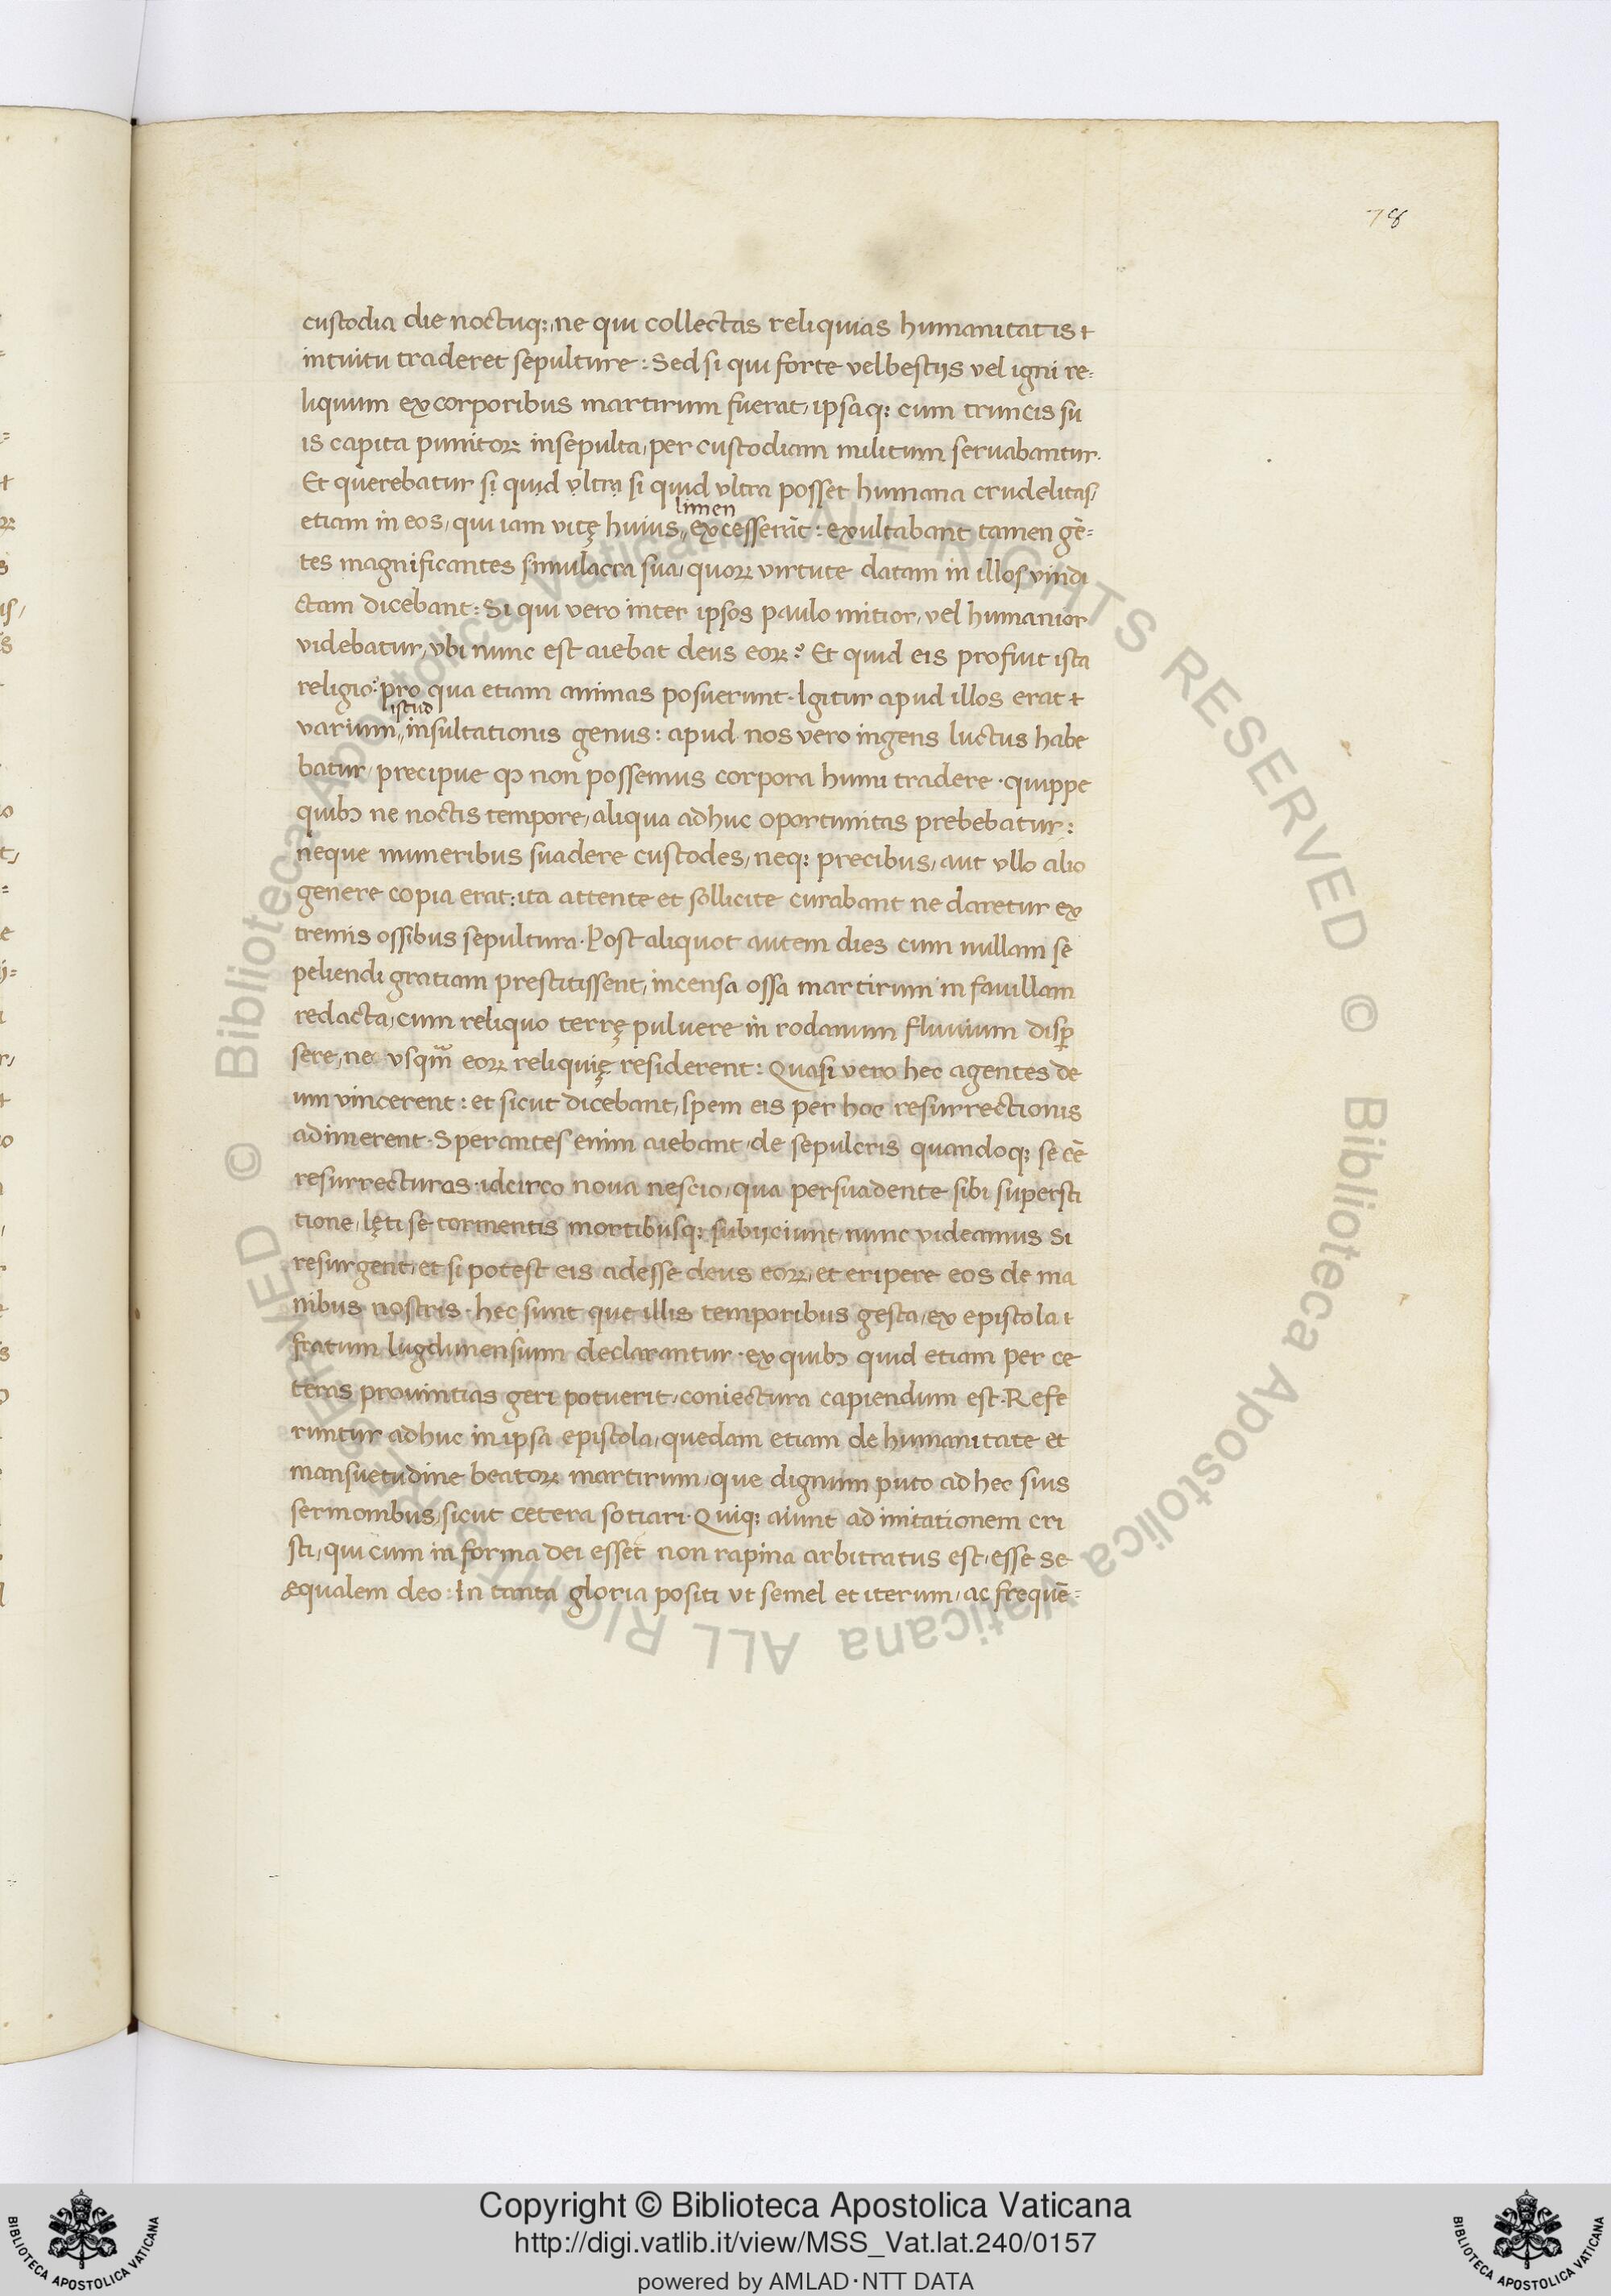 78
custodia die noctuq; ne qui collectas reliquias humanitatis t
intuitu traderet sepulture: Sed si qui forte vel bestijs vel igni re=
liquum ex corporibus martirum fuerat, ipsaq; cum truncis su
is capita punitoꝝ insepulta, per custodiam militum seruabantur.
Et querebatur si quid vltra si quid vltra posset humana crudelitas,
limen
etiam in eos, qui iam vitę huius,, excesserūt: exultabant tamen gē=
tes magnificantes simulacra sua, quoꝝ virtute datam in illos vindi
ctam dicebant: Si qui vero inter ipsos paulo mitior, vel humanior
videbatur, vbi nunc est aiebat deus eoꝝ? Et quid eis profuit ista
religio? pro qua etiam animas posuerunt. Igitur apud illos erat t
istud
varium,, insultationis genus: apud nos vero ingens luctus habe
batur, precipue ꝙ non possemus corpora humi tradere. quippe
quibꝫ ne noctis tempore, aliqua adhuc oportunitas prebebatur:
neque muneribus suadere custodes, neq; precibus, aut vllo alio
genere copia erat: ita attente et sollicite curabant ne daretur ex
tremis ossibus sepultura. Post aliquot autem dies cum nullam se
peliendi gratiam prestitissent, incensa ossa martirum in fauillam
redacta, cum reliquo terrę puluere in rodanum fluuium disꝑ
sere, ne vsqm̄ eoꝝ reliquię residerent: Quasi vero hec agentes de
um vincerent: et sicut dicebant, spem eis per hoc resurrectionis
adimerent. Sperantes enim aiebant, de sepulcris quandoq; se eē
resurrecturos. idcirco noua nescio, qua persuadente sibi supersti
tione, lęti se tormentis mortibusq; subijciunt, nunc videamus si
resurgent, et si potest eis adesse deus eoꝝ, et eripere eos de ma
nibus nostris. hec sunt que illis temporibus gesta, ex epistola t
fratum lugdunensium declarantur. ex quibꝫ quid etiam per ce
teras prouintias geri potuerit, coniectura capiendum est. Refe
runtur adhuc in ipsa epistola, quedam etiam de humanitate et
mansuetudine beatoꝝ martirum, que dignum puto ad hec suis
sermonibus, sicut cetera sotiari. Quiq; aiunt ad imitationem cri
sti, qui cum in forma dei esset non rapina arbitratus est, esse se
ęqualem deo: In tanta gloria positi vt semel et iterum, ac frequē=
© Biblioteca Apostolica Vaticana ALL RIGHTS RESERVED © Biblioteca Apostolica Vaticana ALL RIGHTS RESERVED
Copyright © Biblioteca Apostolica Vaticana
http://digi.vatlib.it/view/MSS_Vat.lat.240/0157
powered by AMLAD·NTT DATA
BIBLIOTECA APOSTOLICA VATICANA
BIBLIOTECA APOSTOLICA VATICANA